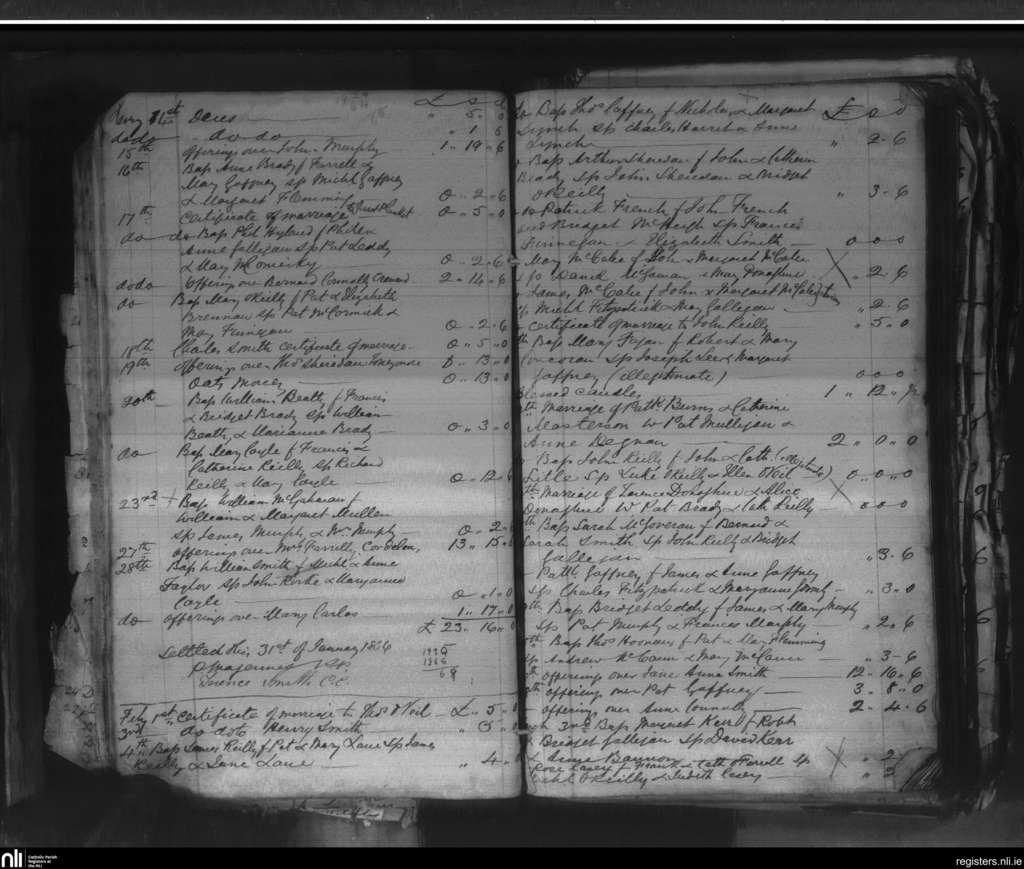 £ s d
Dues " 5 " 0
dodo - do do " 1 " 6
15th offerings over John Murphy 1 " 19 " 6
16th Bap Anne Brady f Farrell &
Mary Gaffney sp Michl Gaffney
& Margaret Flemming 0 " 2 " 6
17th Certificate of marriage 0 " 5 " 0
do do Bap Phil Hyland f Philip &
Anne Galligan sp Pat Leddy
& Mary McComisky 0 " 2 " 6
dodo Offering over Bernard Connolly 2 " 14 " 6
do Bap Mary OReilly f Pat & Elizabeth
Brennan sp Pat McCormick &
Mary Finnigan 0 " 2 " 6
18th Charles Smith certificate of marriage 0 " 5 " 0
19th offering over Thos Sheridan 0 " 13 " 0
Oats Money 0 " 13 " 0
20th Bap William Beatty f Francis
& Bridget Brady sp William
Beatty & Marianne Brady 0 " 3 " 0
do Bap Mary Coyle f Francis &
Catharine Reilly sp Richard
Reilly & Mary Coyle 0 " 12 " 6
23rd + Bap William McGahan f
William & Margaret Mullen
sp James Murphy & Wm Murphy 0 " 2 "
27th offering over Mrs Farrelly 13 " 15 " 6
28th Bap William Smith f Michl & Anne
Taylor sp John Rorke & Maryanne
Coyle 0 " 1 " 0
do offerings over Mary Carlos 1 " 17 " 0
£ 23 " 16 " 0
Settled this 31st of January 1866
1866
Terence Smith C.C.
Feby 1st certificate of marriage to Thos ONeil £ " 5 " 0
3rd do do to Henry Smith " 5 " 0
4th Bap James Reilly f Pat & Mary Lane sp James
Reilly & Jane Lane " 4 " 0
£ s d
Bap Thos Gaffney f Nicholas & Margaret
Lynch sp Charles Harret & Anne
Lynch " 2 " 6
Bap Arthur Sheridan f John & Catherine
Brady sp John Sheridan & Bridget
OReilly " 3 - 6
Patrick French f John French
and Bridget McHugh sp Francis
Finnegan & Elizabeth Smith 0 0 0
Mary McCabe f John & Margaret McCabe
sps Daniel McGowan & Mary Donoghue " 2 " 6
James McCabe f John & Margaret McCabe
sp Michl Fitzpatrick & Mary Galligan " 2 " 6
certificate of marriage to John Reilly " 5 " 0
Bap Mary Fegan f Robert & Mary
Corcoran sp Joseph Lee & Margaret
Gaffney (illegitimate) 0 0 0
Blessed candles 1 " 12 "
Marriage of Patk Burns & Catherine
Masterson W Pat Mulligan &
Anne Degnan 2 " 0 " 0
Bap John Reilly f John & Cath
Little sp Luke OReilly & Ellen ONeil 0 " 0 " 0
Marriage of Terence Donoghue & Alice
Donoghue W Pat Brady & Cath Reilly 0 0 0
Bap Sarah McGoveran f Bernard &
Sarah Smith sp John Reilly & Bridget
Galligan " 3 - 6
Patk Gaffney f James & Anne Gaffney
sps Charles Fitzpatrick & Maryanne Smith " 3 " 0
Bap Bridget Leddy f James & Mary Murphy
sp Pat Murphy & Frances Murphy " 2 " 6
Bap Thos Noonan f Pat & Mary Flemming
sp Andrew McCann & Mary McCann " 3 - 6
offerings over Jane Anne Smith 12 " 16 " 6
offering over Pat Gaffney 3 " 8 " 0
offering over Anne Connolly 2 " 4 " 6
3rd Bap Margaret Kerr f Robt
& Bridget Galligan sp David Kerr
& Anne Bannon " 2 "
Rose f Frank & Cath OFarrell sp
OReilly & Judith Casey " 2
nli
Catholic Parish
Registers at
the NLI
registers.nli.ie